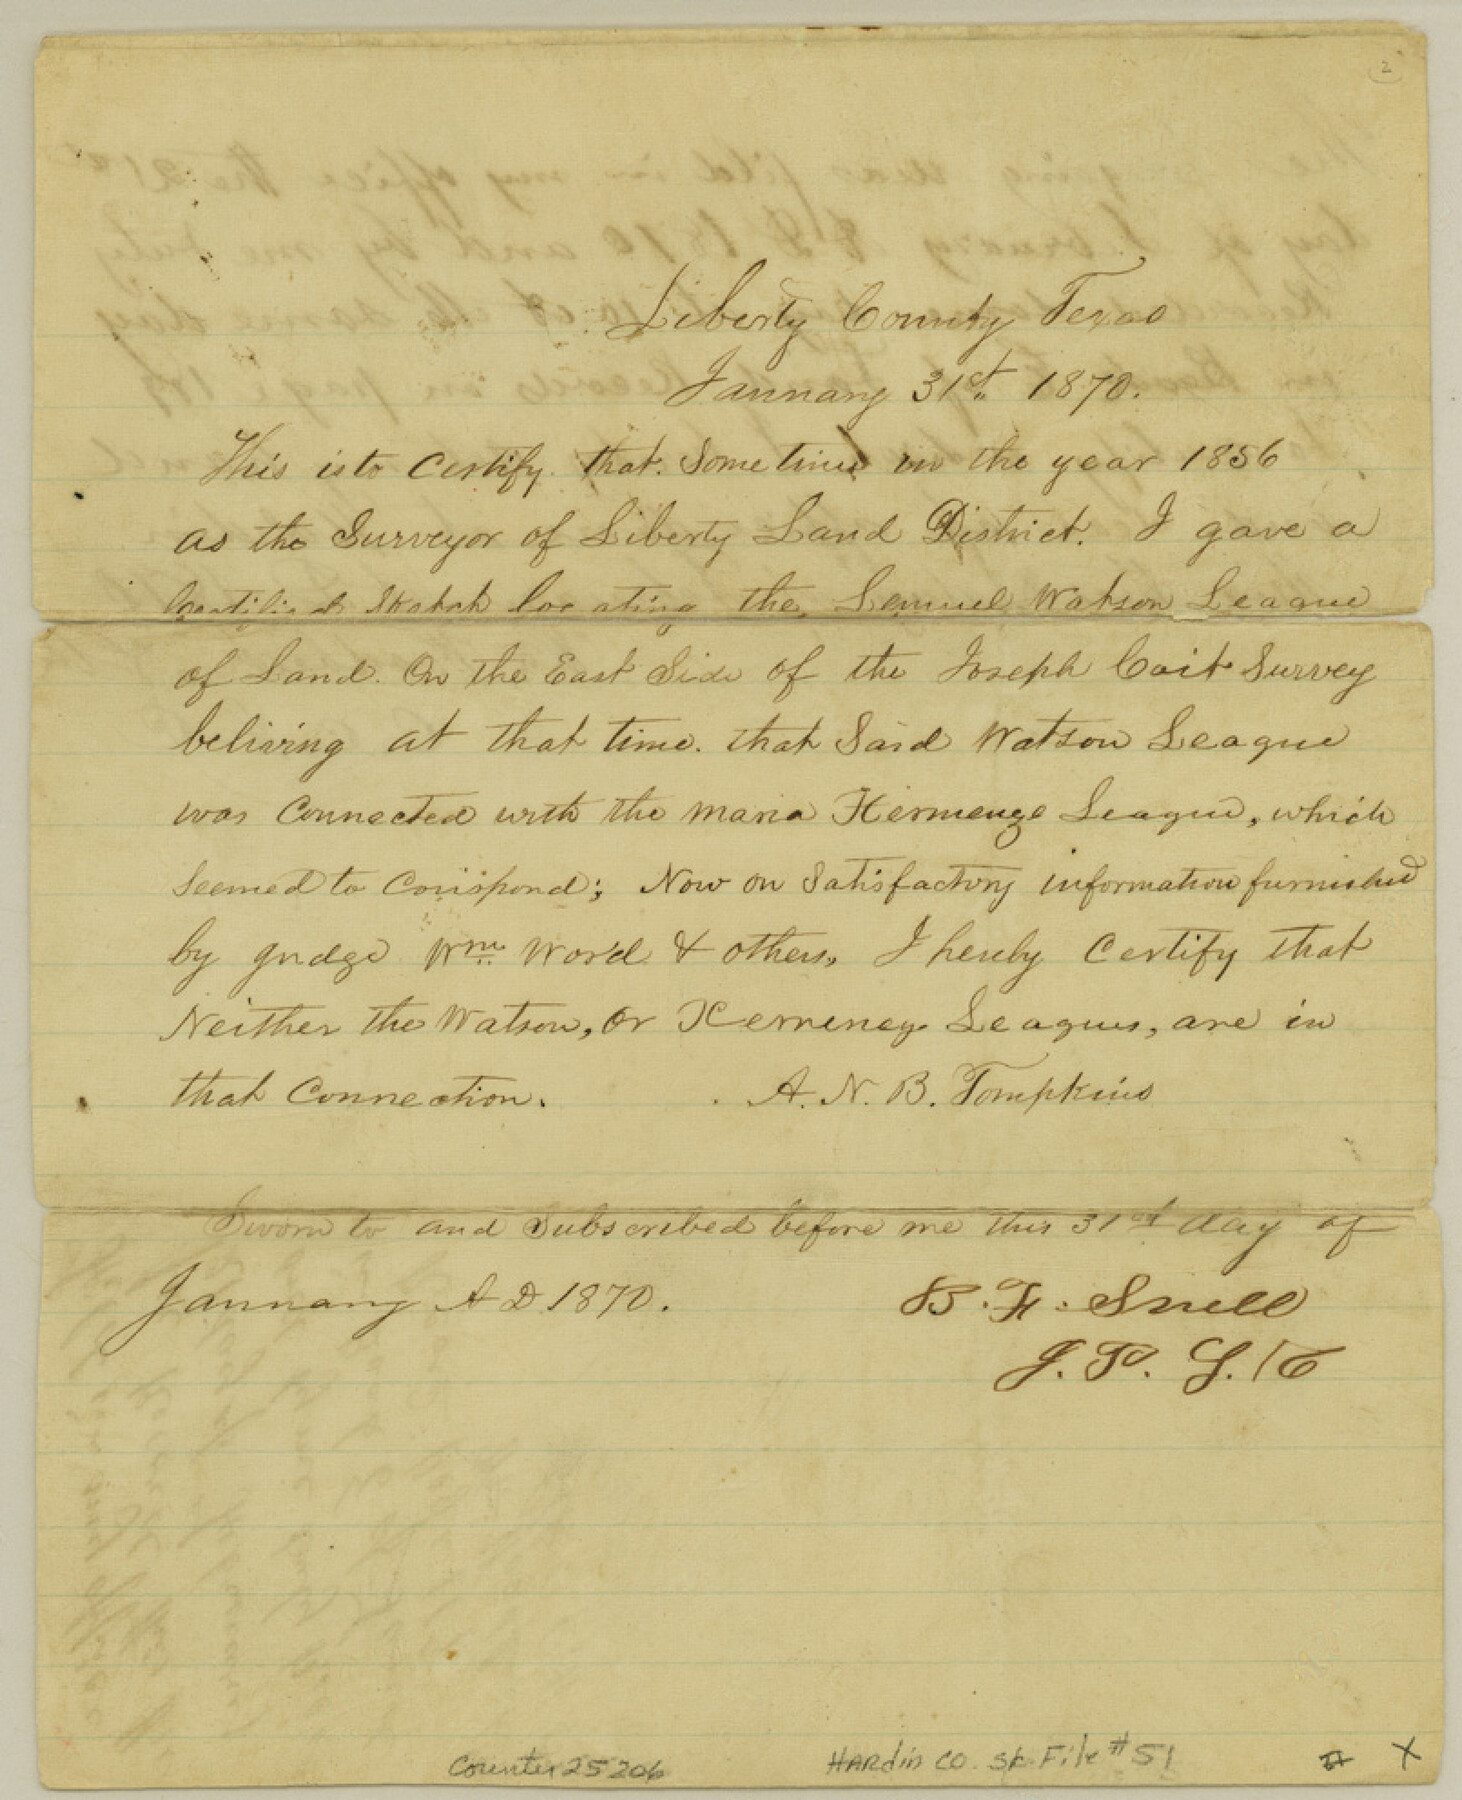 2
Liberty County Texas
January 31st 1870.
This is to Certify that. Some time in the year 1856
as the Surveyor of Liberty Land District. I gave a
Certified Sketch locating the Lemuel Watson League
of Land. On the East Side of the Joseph Coit Survey
beliving at that time. that Said Watson League
was Connected with the Maria Hermenge League, which
Seemed to Corispond; Now on Satisfactory information furnished
by Judge Wm Word & others, I hereby Certify that
Neither the Watson, or Leagues, are in
that Connection. A. N. B. Tompkins
Sworn to and Subscribed before me this 31st day of
January A D 1870. B. F. Snell
J. P.
Counter 25206 HARDIN CO. Sk. File #51 X